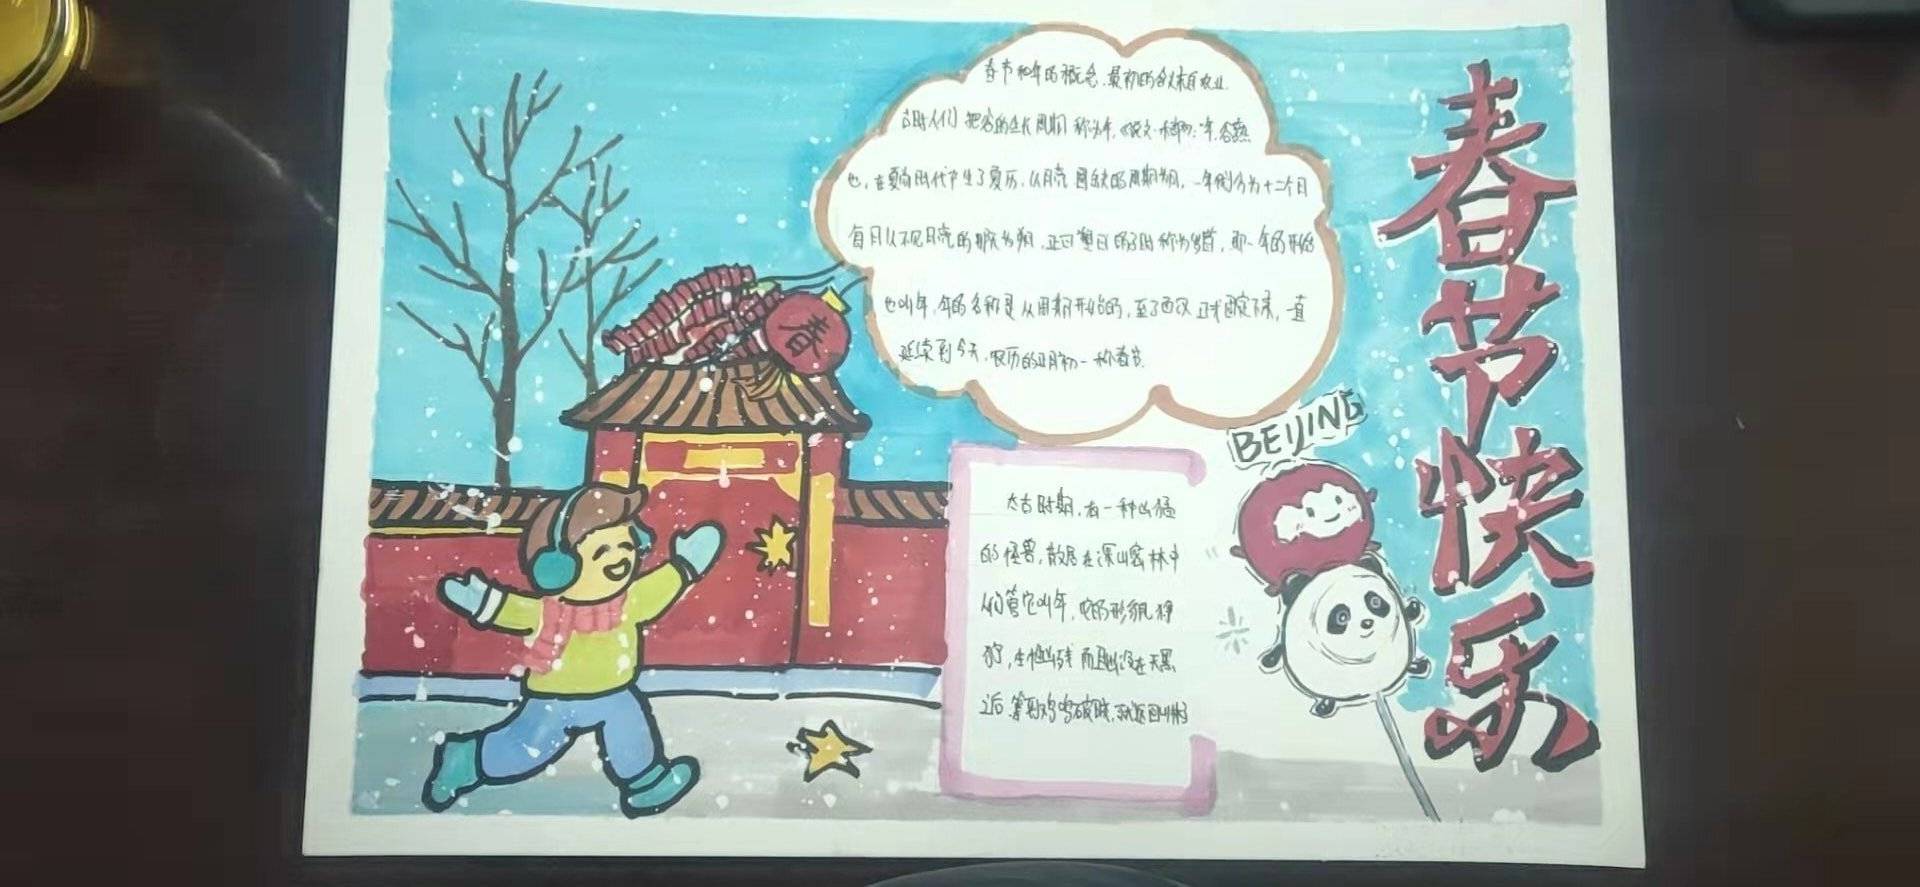 春节和年的概念,最初的含义来自农业.
古时人们把谷的生长周期称为年,《说文·禾部》:"年,谷熟
也,在夏商时代产生了夏历,以月亮圆缺的周期为月,一年划分为十二个月
每月以不见月亮的那天为朔,正月朔日的子时称为岁首,即一年的开始
也叫年,年的名称是从周朝开始的,至了西汉正式固定下来,一直
延续到今天,农历的正月初一称春节.
春
春节快乐
BEIJING
太古时期,有一种凶猛
的怪兽,散居在深山密林中
人们管它叫年,它的形貌狰
狞,生性凶残 而且出没在天黑
之后.等到鸡鸣破晓,就返回山林